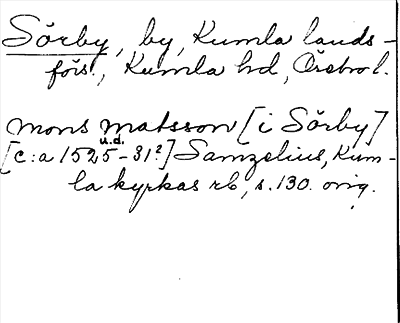 Sörby, by, Kumla lands-
förs., Kumla hd, Örebro l.
mons matsson [i Sörby]
u.d.
[c:a 1525-31?] Samzelius, Kum-
la kyrkas rb, s. 130. orig.